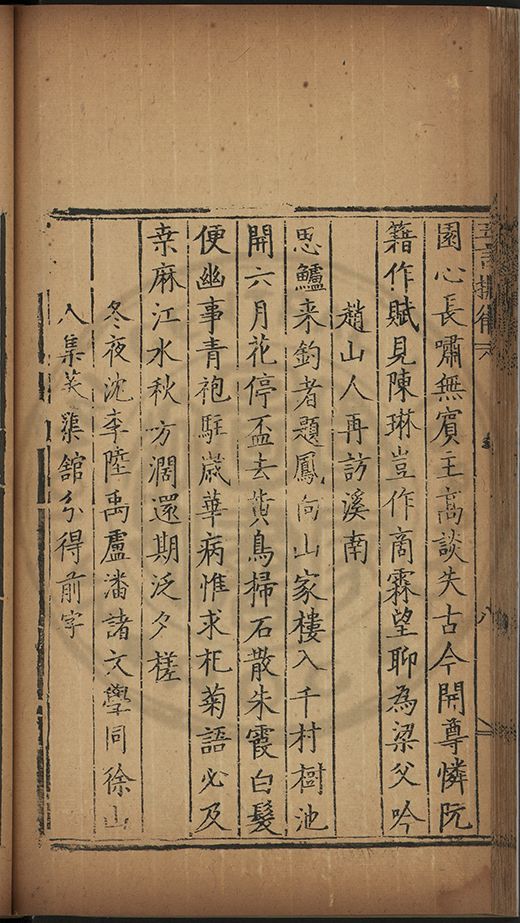 園心長嘯無賓主高談失古今開尊憐阮
籍作賦見陳琳豈作商霖望聊為梁父吟
趙山人再訪溪南
思鱸來釣者題鳳向山家樓入千村樹池
開六月花停盃去黃鳥掃石散朱霞白髮
便幽事青袍駐歲華病惟求杞菊語必及
桒麻江水秋方濶還期泛夕槎
冬夜沈李陸禹盧潘諸文學同徐山
人集芙蕖舘分得前字